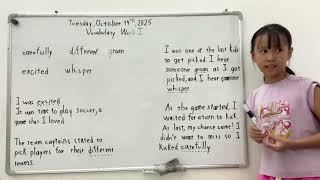 Tuesday, October 14th, 2025
Vocabulary Week I
carefully different groan
excited whisper
I was excited
It was time to play soccer, a
game that I loved
The team captains started to
pick players for their different
teams.
I was one of the last kids
to get picked. I hear
someone groan as I got
picked, and I hear someone
whisper
As the game started, I
waited for my turn to kick.
At last, my chance came! I
didn't want to miss so I
kicked carefully